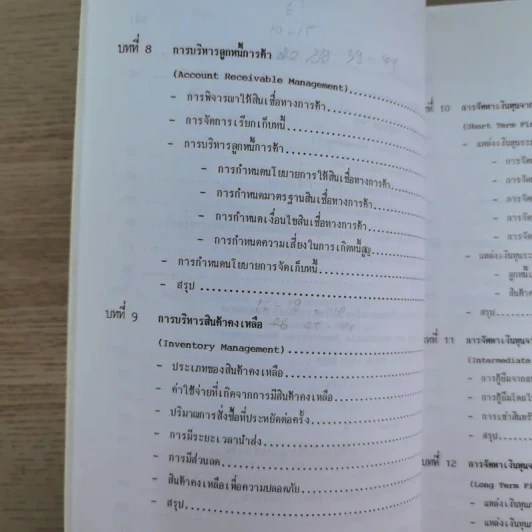 10-15
บทที่ 8 การบริหารลูกหนี้การค้า
(Account Receivable Management)
- การพิจารณาให้สินเชื่อทางการค้า
- การจัดการเรียกเก็บหนี้
- การบริหารลูกหนี้การค้า
- การกำหนดนโยบายการให้สินเชื่อทางการค้า
- การกำหนดมาตรฐานสินเชื่อทางการค้า
- การกำหนดเงื่อนไขสินเชื่อทางการค้า
- การกำหนดความเสี่ยงในการเกิดหนี้สูญ
- การกำหนดนโยบายการจัดเก็บหนี้
- สรุป
บทที่ 9 การบริหารสินค้าคงเหลือ
(Inventory Management)
- ประเภทของสินค้าคงเหลือ
- ค่าใช้จ่ายที่เกิดจากการมีสินค้าคงเหลือ
- ปริมาณการสั่งซื้อที่ประหยัดต่อครั้ง
- การมีระยะเวลานำส่ง
- การมีส่วนลด
- สินค้าคงเหลือเพื่อความปลอดภัย
- สรุป
ที่ 10 การจัดหาเงินทุนจา
(Short Term Fi
- แหล่งเงินทุนระย
- การจัด
- การจัด
- การจัด
- การจัด
- การจัด
- แหล่งเงินทุนระ
- ลูกหนี้
- สินค้า
- สรุป
ที่ 11 การจัดหาเงินทุนจา
(Intermediate
- การกู้ยืมจากธ
- การกู้ยืมโดยใ
- การเช่าสินทรั
- สรุป
บทที่ 12 การจัดหาเงินทุนจ
(Long Term Fi
- แหล่งเงินทุน
- แหล่งเงินทุน